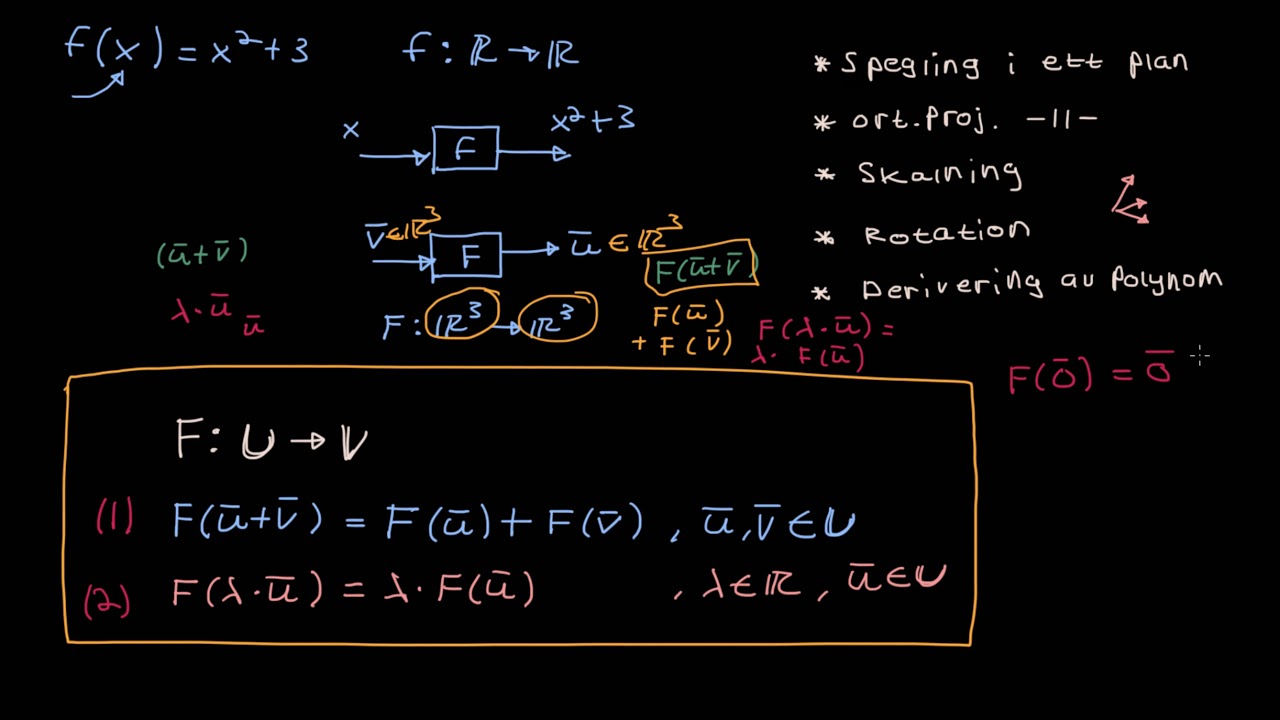 f(x) = x²+3
f: ℝ→ℝ
x
F
x²+3
v̄∈ℝ³
F
ū ∈ ℝ³
F: ℝ³→ℝ³
(ū+v̄)
λ·ū
ū
F(ū+v̄)
F(ū)
+ F(v̄)
F(λ·ū) =
λ· F(ū)
* Spegling i ett plan
* ort.proj. -11-
* Skalning
* Rotation
* Derivering av polynom
F(0̄) = 0̄
F: U → V
(1) F(ū+v̄) = F(ū)+F(v̄) , ū,v̄∈U
(2) F(λ·ū) = λ·F(ū) , λ∈ℝ, ū∈U